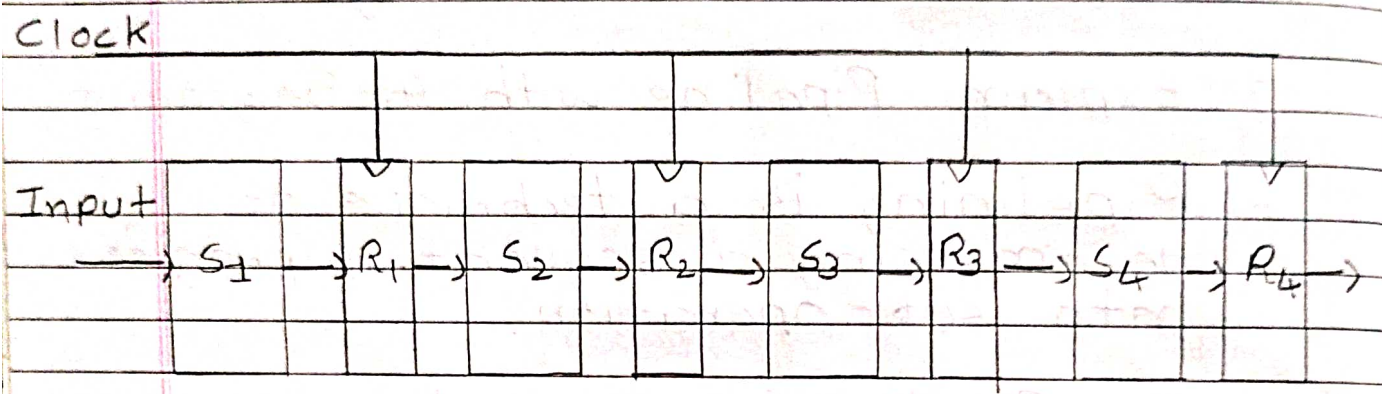 Clock
Input
S1 R1 S2 R2 S3 R3 S4 R4